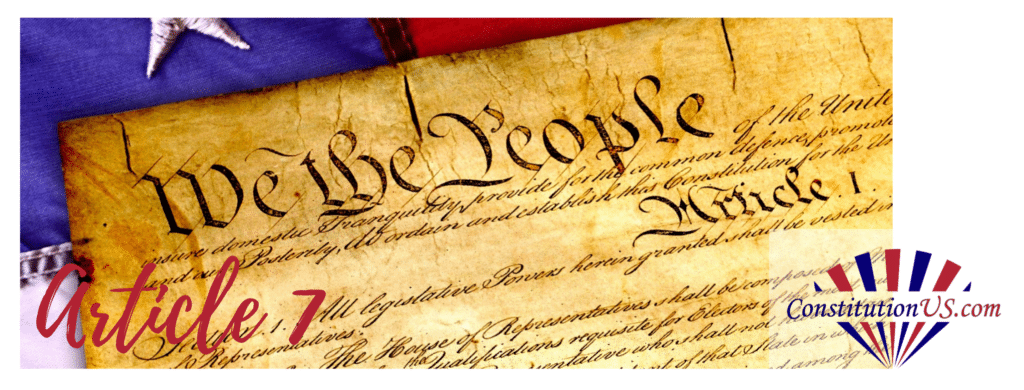 We the People
of the Unite
insure domestic Tranquility, provide for the common defence, promote
and our Posterity, do ordain and establish this Constitution for the Un
Article. I.
Section. 1. All legislative Powers herein granted shall be vested in
Representatives.
The House of Representatives shall be composed of
Qualifications requisite for Electors of the most
Representative who shall not ha
of that State in
Article 7
ConstitutionUS.com